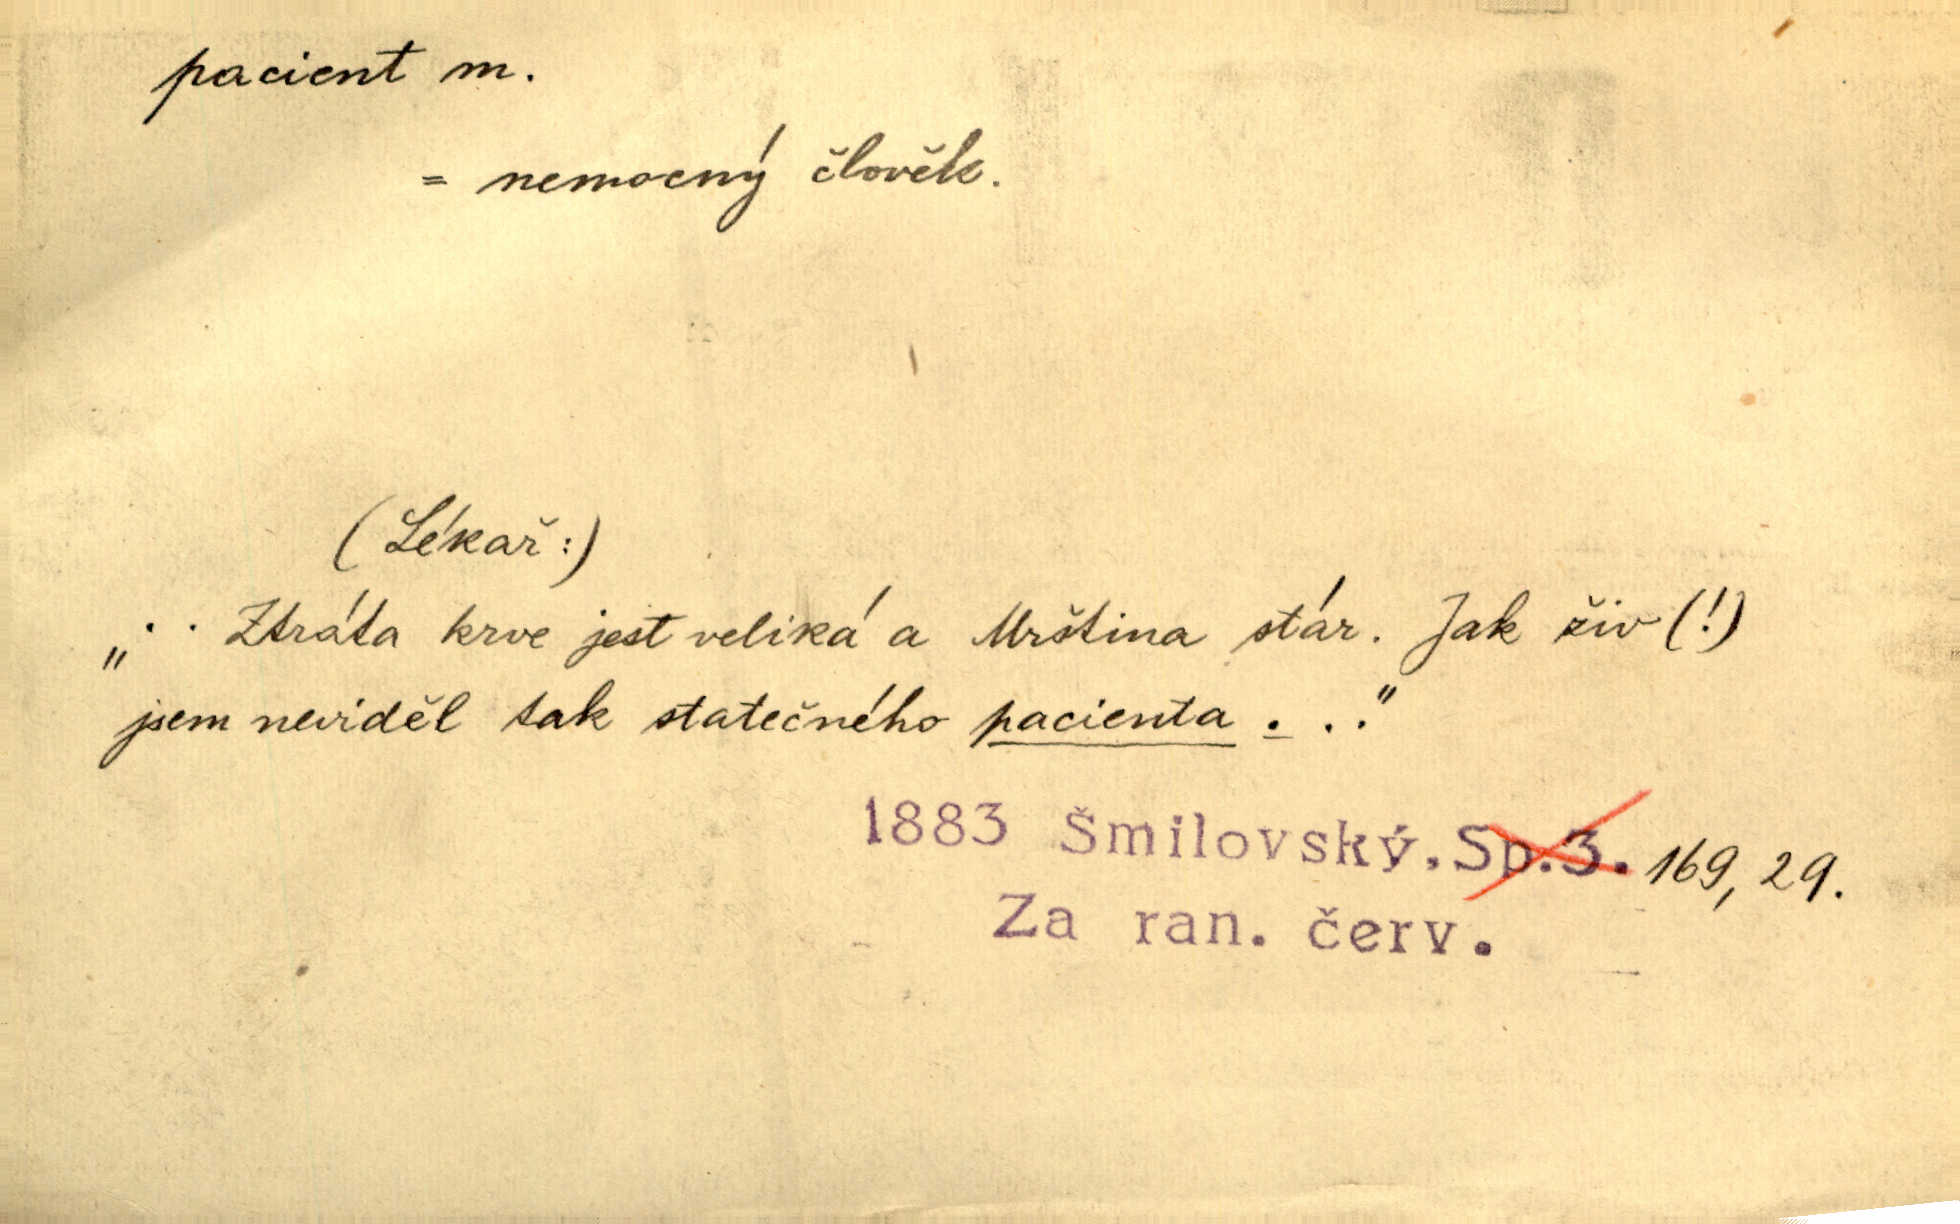 pacient m.
= nemocný člověk.
(Lékař:)
„. . Ztráta krve jest veliká a Mrština stár. Jak živ (!)
jsem neviděl tak statečného pacienta . . .“
1883 Šmilovský, Sp.3. 169, 29.
Za ran. červ.